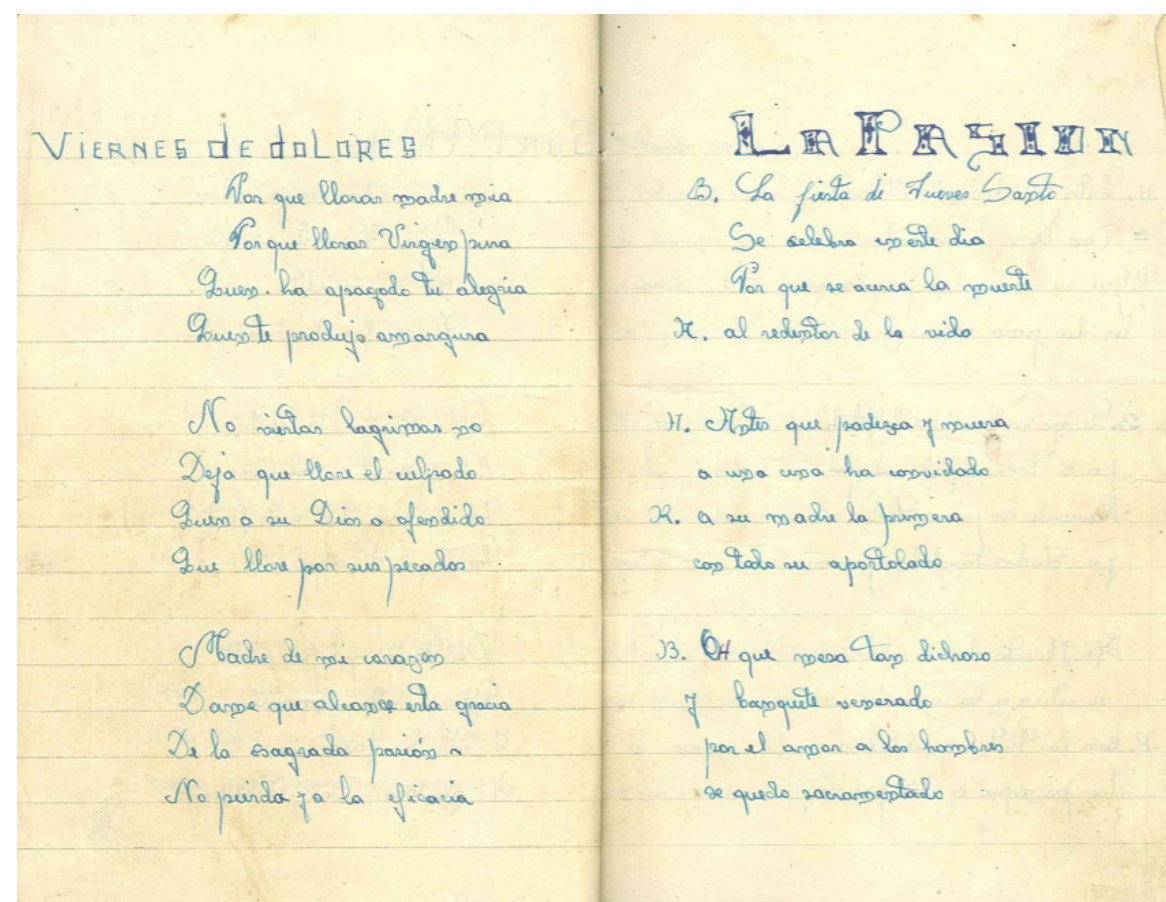 VIERNES de doLORES
Por que lloras madre mia
Por que lloras Virgen pura
Quien ha apagado tu alegria
Quien te produjo amargura
No viertas lagrimas no
Deja que llore el culpado
Quien a su Dios a ofendido
Que llore por sus pecados
Madre de mi corazón
Dame que alcance esta gracia
De la sagrada pasión
No pierda ya la eficacia
LA PASION
B. La fiesta de Jueves Santo
Se celebra en este dia
Por que se acerca la muerte
H. al redentor de la vida
H. Antes que padezca y muera
a una cena ha convidado
R. a su madre la primera
con todo su apostolado
B. OH que mesa tan dichosa
y banquete venerado
por el amor a los hombres
se quedo sacramentado